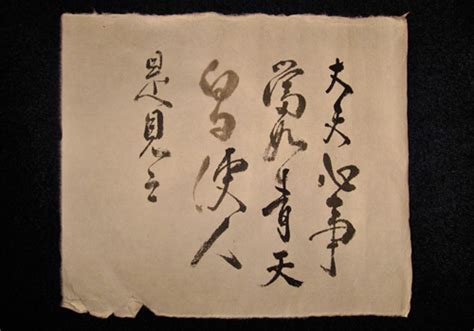 丈夫心事
當如青天
白日使人
是見之